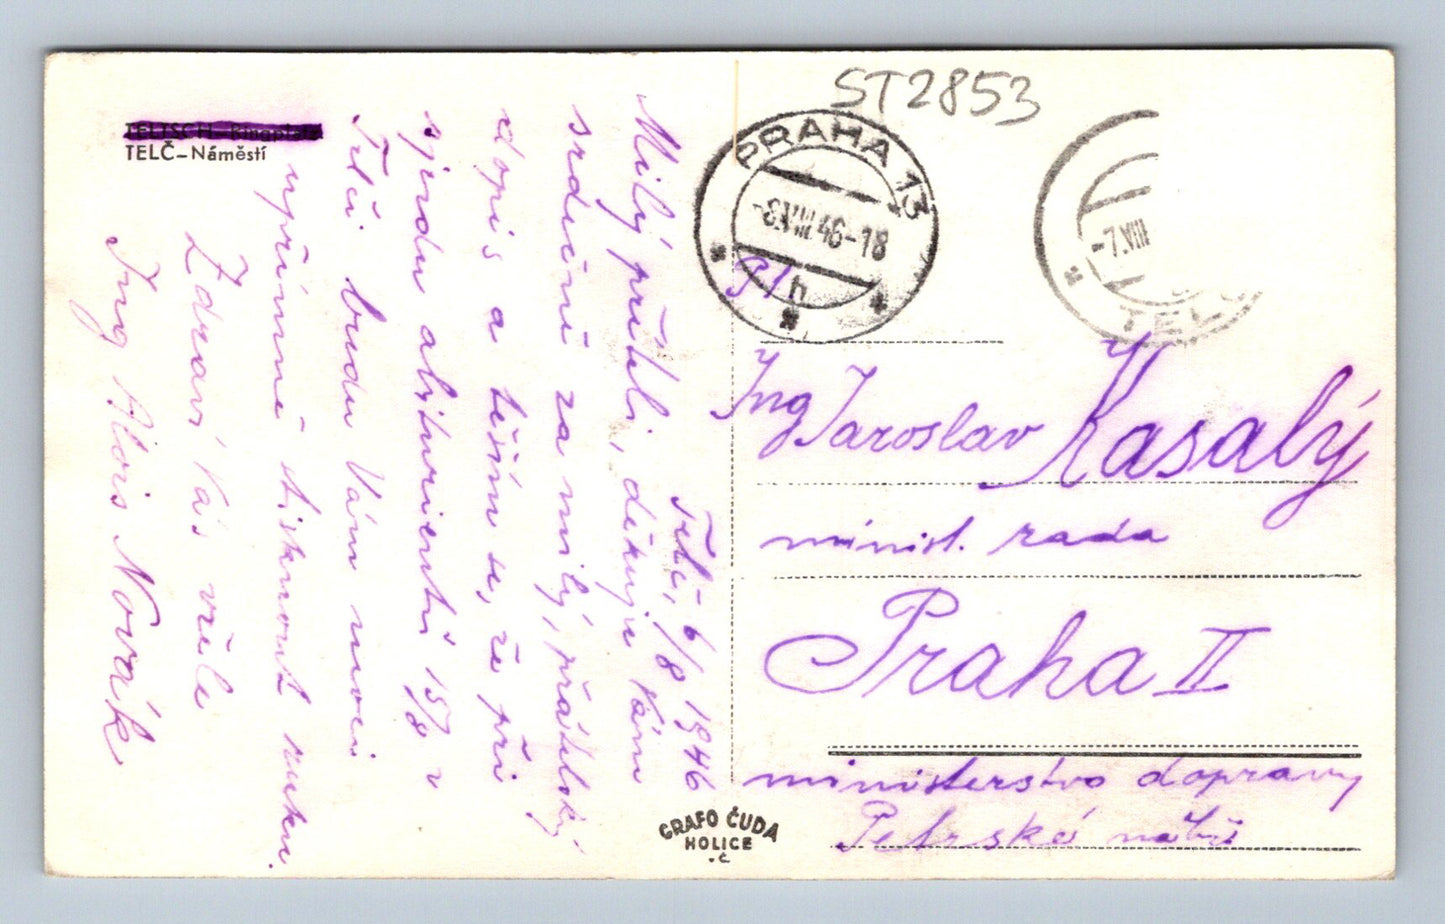 ST2853
TELTSCH-Ringplatz
TELČ-Náměstí
PRAHA 13
-8.VIII.46-18
h
-7.VIII
TELČ
Telč, 6/8 1946
Milý příteli, děkuji Vám
srdečně za milý, přátelský
dopis a těším se, že při
sjezdu abiturientů 15/8 v
Telči budu Vám moci
upřímně tisknout ruku.
Zdraví Vás vřele
Ing Alois Novák
Ing Jaroslav Kasalý
minist. rada
Praha II
ministerstvo dopravy
Petrské nábř
GRAFO ČUDA
HOLICE
.Č.